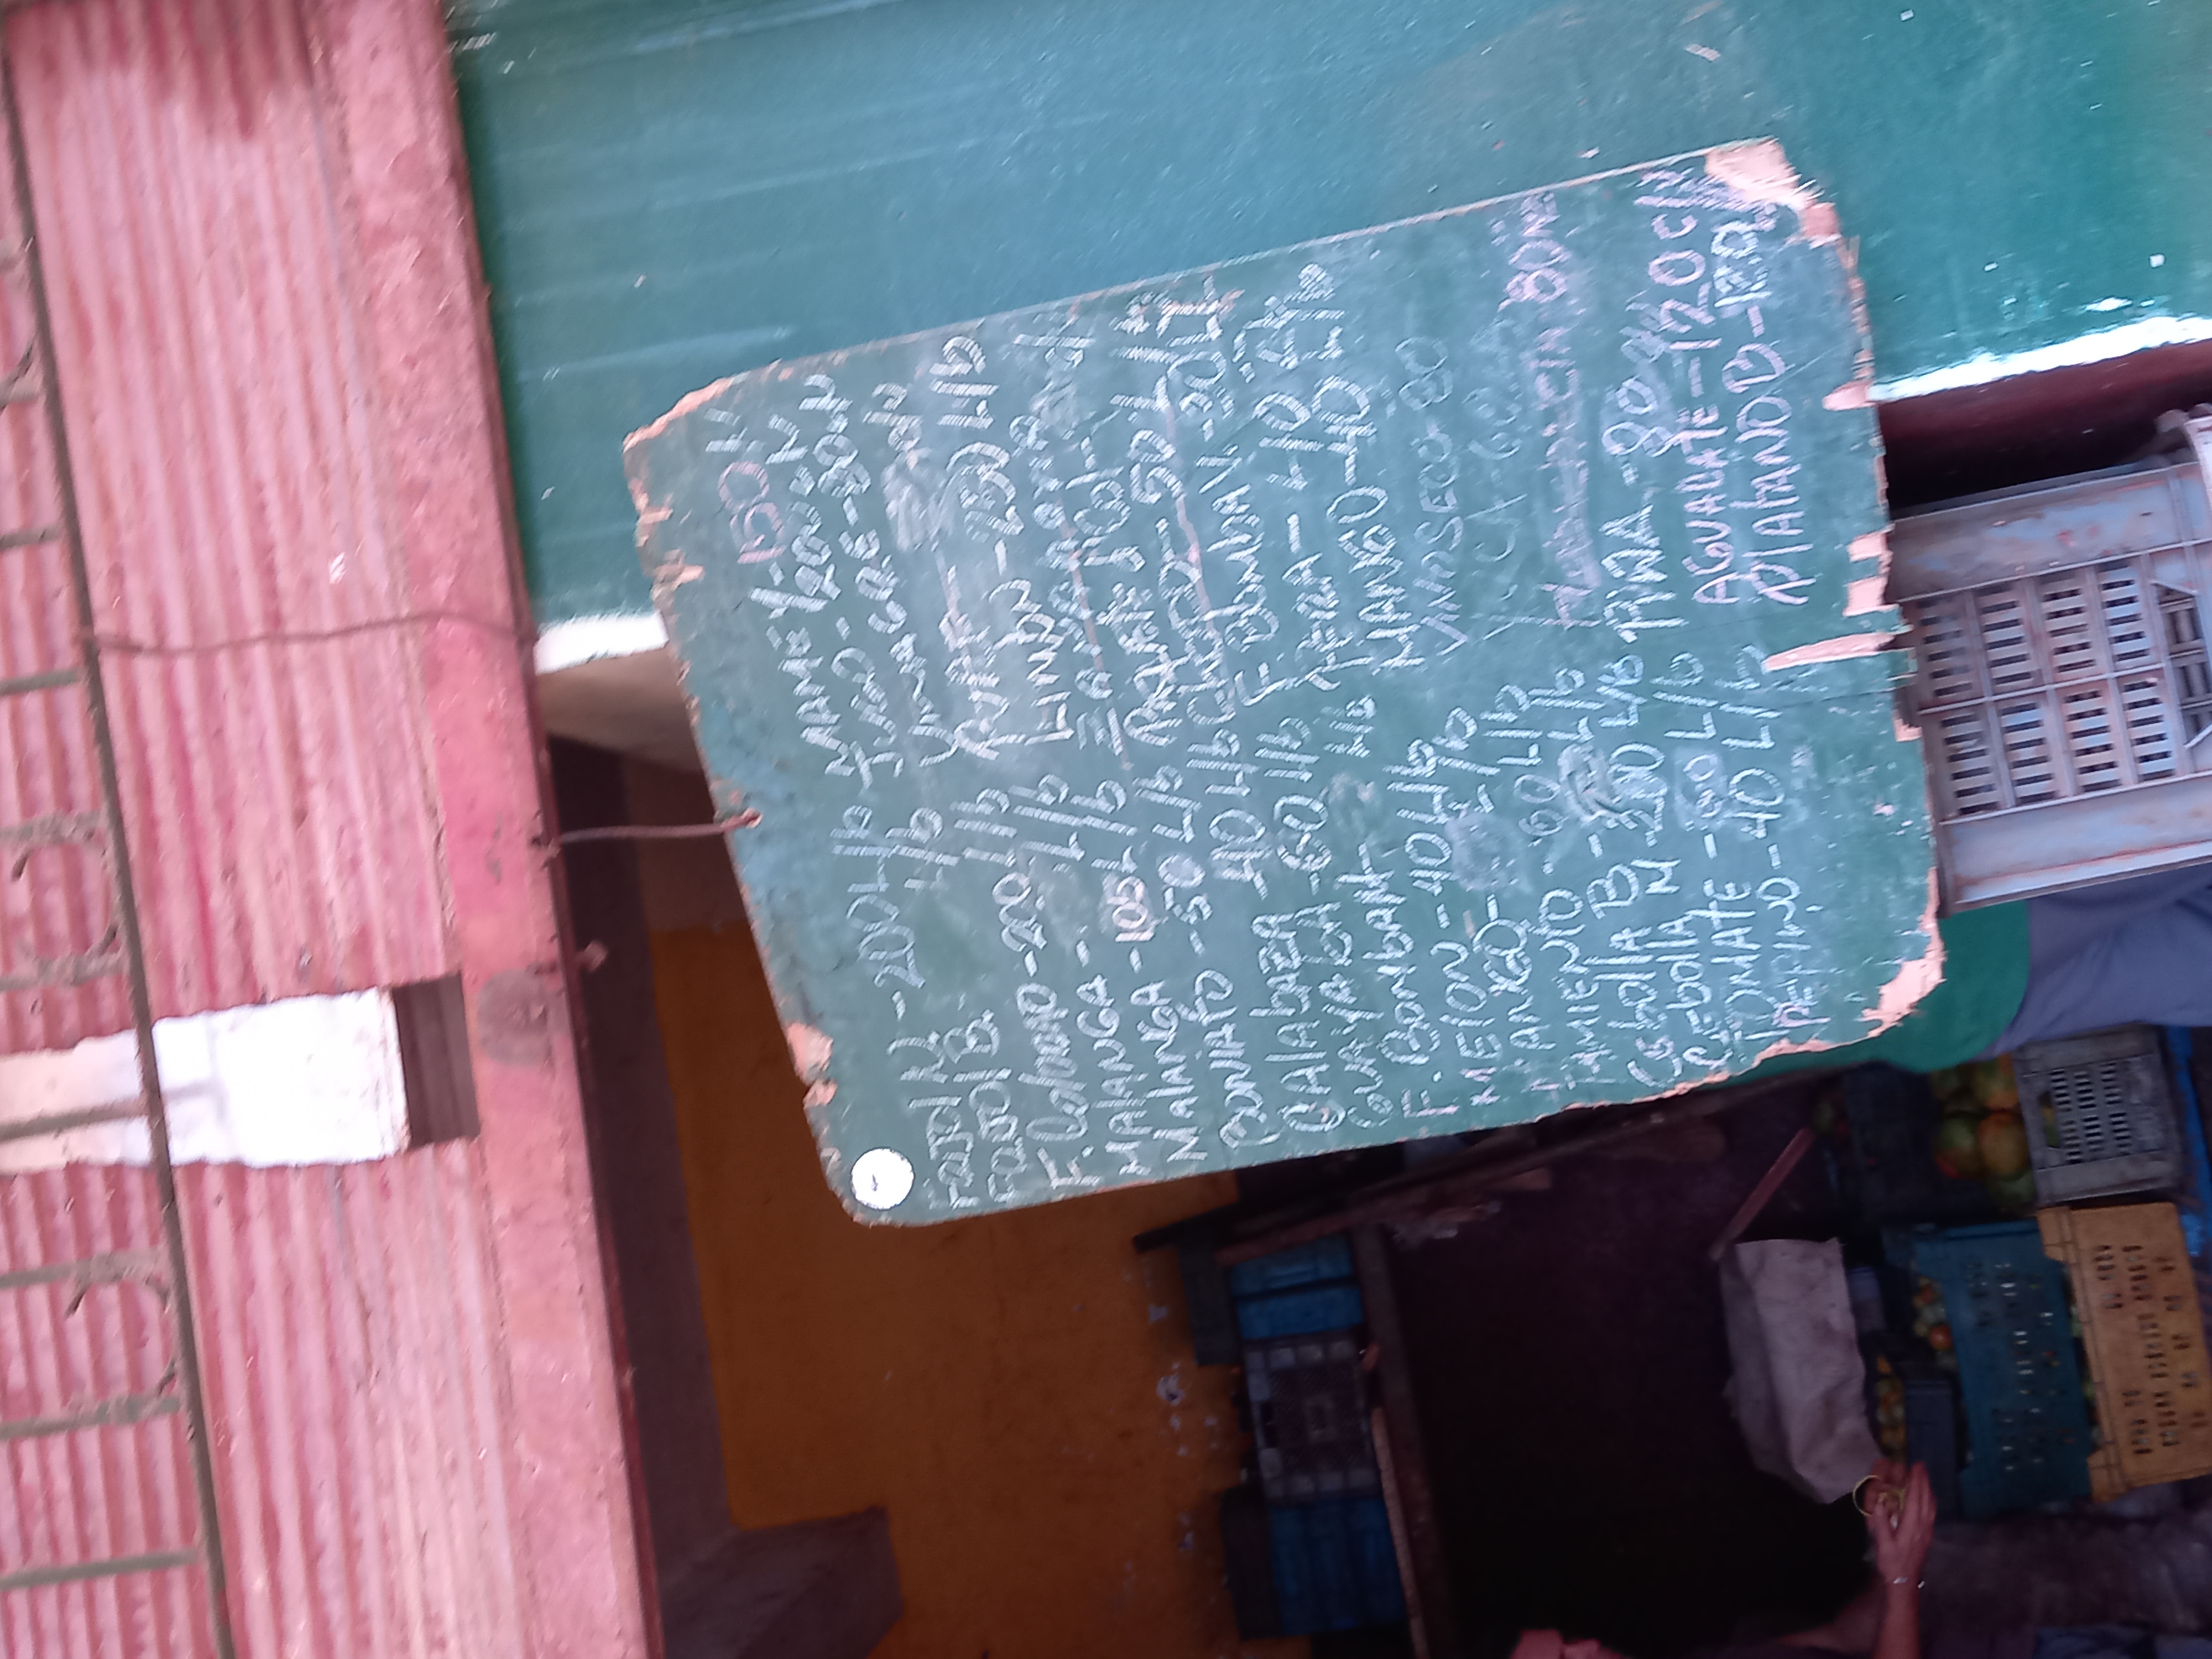 FRIJOL N. - 200 L/b
FRIJOL B. L/b
F. Colorao - 200 L/b
MALANGA - L/b
MALANGA - 105 L/b
BONIATO - 50 L/b
CALABAZA - 40 L/b
GUAYABA - 60 L/b
F. BOMBAM - L/b
MELON - 40 L/b
MANGO - L/b
PIMIENTO - 60 L/b
Cebolla B - L/b
Cebolla M - 200 L/b
TOMATE - 60 L/b
PEPINO - 40 L/b
MAMEY - 150
JUGO - 200
VINAGRE - 80
PURE -
LIMON - 250 L/b
ZANAHORIA
PAQUETE
CHOPO - 50 L/b
F. BOMBA V. - 30 Lb
PERA - 40 L/b
MANGO - 40 L/b
VINO SECO - 80
YUCA - 60
80
PIÑA - 80
AGUACATE - 120 C/U
PLATANO B - 120